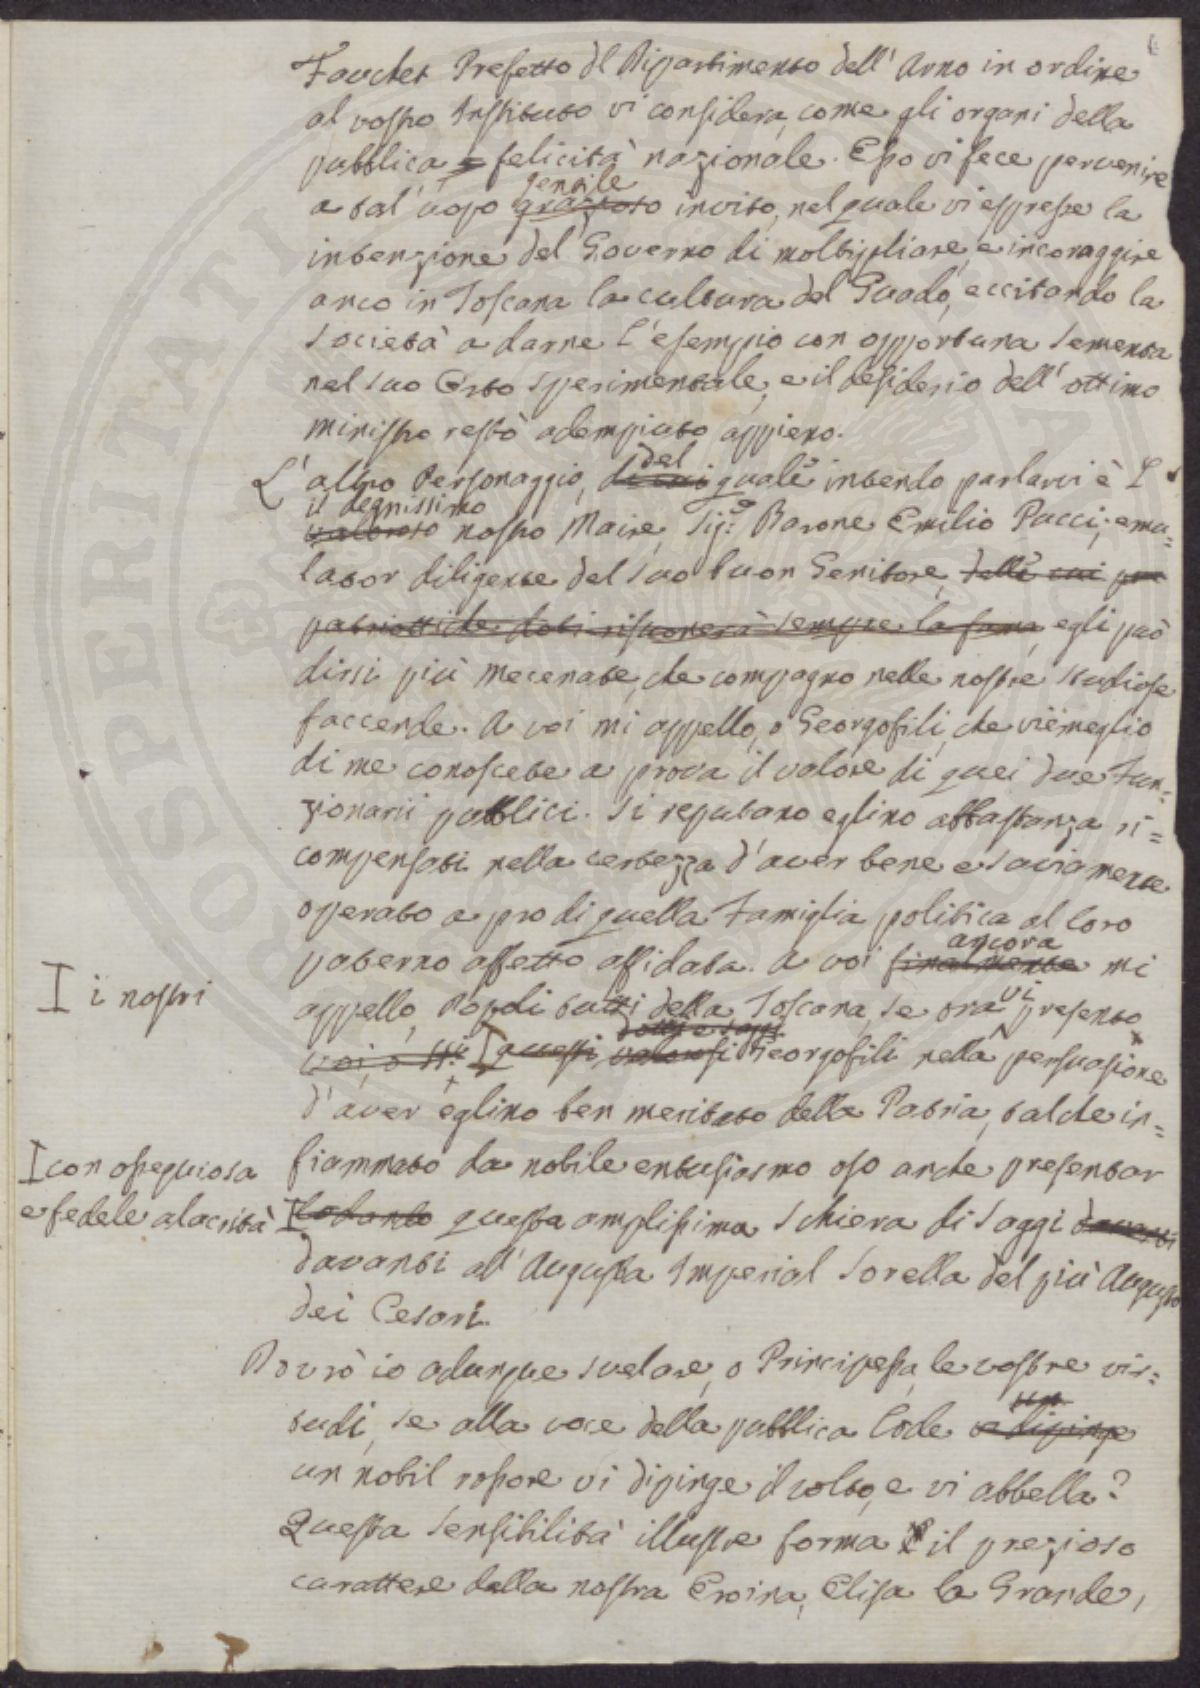 Fauchet Prefetto del Dipartimento dell' Arno in ordine
al vostro Instituto vi considera, come gli organi della
pubblica felicità nazionale. Esso vi fece pervenire
gentile
a tal' uopo grazioso invito, nel quale vi espresse la
intenzione del Governo di moltiplicare, e incoraggire
anco in Toscana la cultura del Guado, eccitando la
Società a darne l'esempio con opportuna sementa
nel suo Orto sperimentale, e il desiderio dell' ottimo
ministro restò adempiuto appieno.
del
L' altro Personaggio, di cui quale intendo parlarvi è l
il degnissimo
valoroso nostro Maire, Sig.e Barone Emilio Pucci; emu=
lator diligente del suo buon Genitore, delle cui
patriottiche doti risuonerà sempre la fama, egli può
dirsi più mecenate, che compagno nelle nostre studiose
faccende. A voi mi appello, o Georgofili, che viemeglio
di me conoscete a prova il valore di quei due Fun=
zionarii pubblici. Si reputano eglino abbastanza ri=
compensati nella certezza d'aver bene e saviamente
operato a pro di quella Famiglia politica al loro
ancora
paterno affetto affidata. A voi finalmente mi
I i nostri
vi
appello, Popoli tutti della Toscana, se ora presento
questi valorosi Georgofili nella persuasione
d'aver eglino ben meritato della Patria, talché in=
fiammato da nobile entusiasmo oso anche presentar
I con ossequiosa
e fedele alacrità
lodando questa amplissima Schiera di Saggi davanti
davanti all' Augusta Imperial Sorella del più Augusto
dei Cesari.
Dovrò io adunque svelare, o Principessa, le vostre vir=
un
tudi, se alla voce della pubblica lode vi dipinge
un nobil rossore vi dipinge il volto, e vi abbella?
Questa sensibilità illustre forma il prezioso
carattere della nostra Eroina, Elisa la Grande,